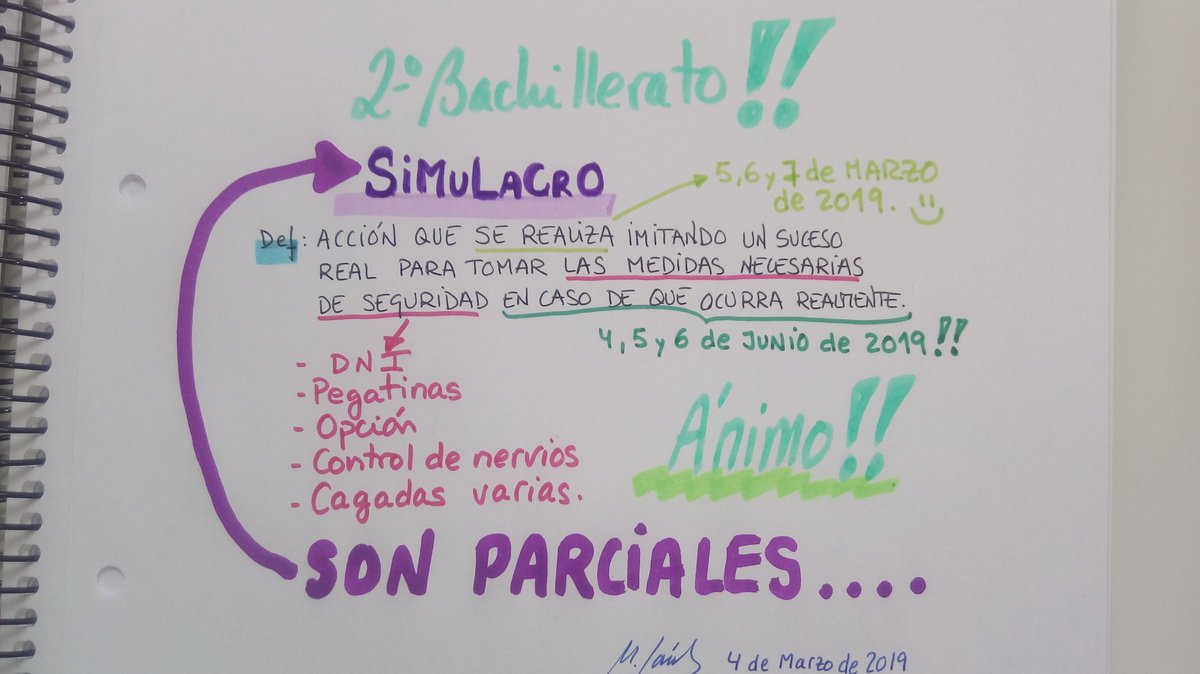 2º Bachillerato!!
SiMULACRO
5, 6 y 7 de MARZO
de 2019.
Def: ACCIÓN QUE SE REALIZA IMITANDO UN SUCESO
REAL PARA TOMAR LAS MEDIDAS NECESARIAS
DE SEGURIDAD EN CASO DE QUE OCURRA REALMENTE.
4, 5 y 6 de JUNIO de 2019!!
- DNI
- Pegatinas
- Opción
- Control de nervios
- Cagadas varias.
Ánimo!!
SON PARCiALES....
4 de Marzo de 2019